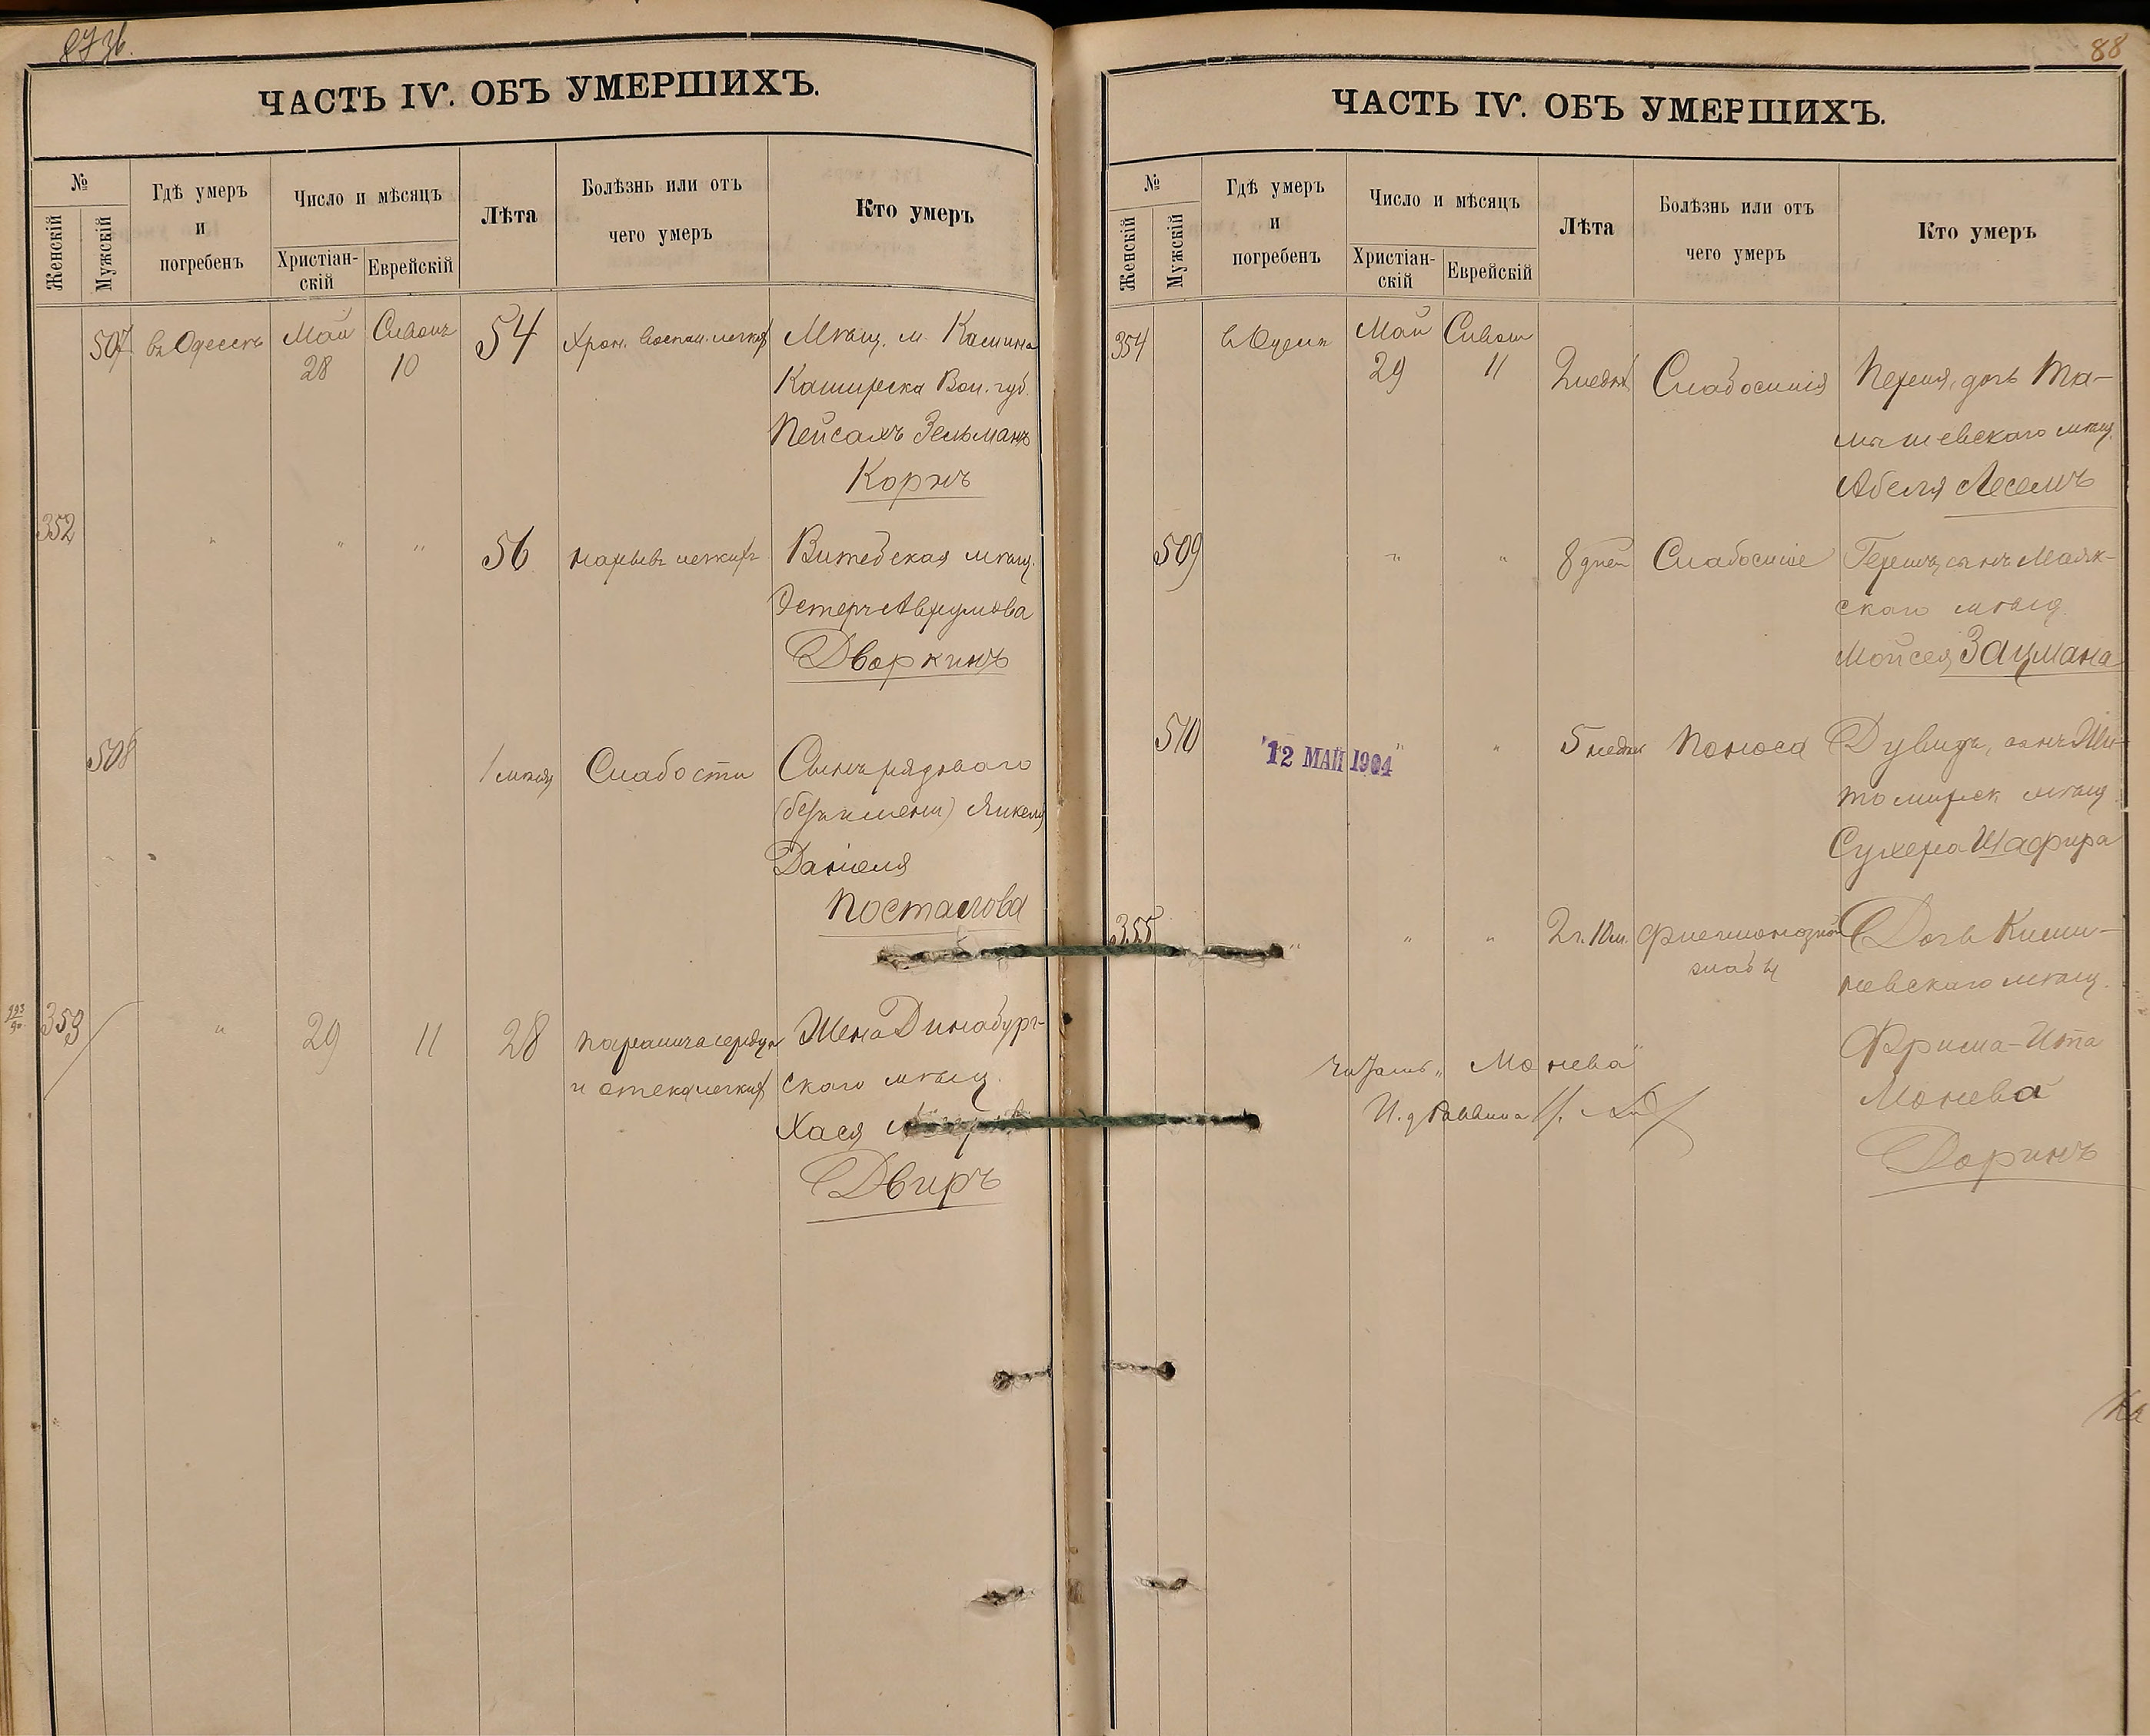 ЧАСТЬ IV. ОБЪ УМЕРШИХЪ.
№
Женскій
Мужскій
Гдѣ умеръ
и
погребенъ
Число и мѣсяцъ
Христіан-
скій
Еврейскій
Лѣта
Болѣзнь или отъ
чего умеръ
Кто умеръ
507 въ Одессѣ Май 28 Сивонъ 10 54 Хрон. воспал. легкихъ Мѣщ. м. Камина
Каширска Вол. губ.
Пейсахъ Зельманъ
Корнъ
352 " " " 56 нарывъ легкихъ Витебская мѣщ.
Эстеръ Аврумова
Дворкинъ
508 Слабости Сынъ рядоваго
(безъ имени) Янкеля
Даніеля
Посталова
353 " 29 11 28 паралича сердца Жена Динабург-
и отека легкихъ скаго мѣщ.
Хася
Двиръ
88
ЧАСТЬ IV. ОБЪ УМЕРШИХЪ.
№
Женскій
Мужскій
Гдѣ умеръ
и
погребенъ
Число и мѣсяцъ
Христіан-
скій
Еврейскій
Лѣта
Болѣзнь или отъ
чего умеръ
Кто умеръ
354 въ Одессѣ Май 29 Сивонъ 11 2 недѣл. Слабосилія Перля, дочь Та-
мѣщ.
Абеля Лесемъ
509 " " 8 дней Слабосиліе Гершъ, сынъ Маяк-
скаго мѣщ.
Мойсея Зацмана
510 12 МАЙ 1904 " " 5 недѣл. Поноса Дувидъ, сынъ Жи-
томирск. мѣщ.
Сухера Шафира
355 " " " 2 г. 10 м. Флегмонозной Дочь Киши-
жабы невскаго мѣщ.
Фрима-Ита
Монева
Доринъ
Читать „Монева"
И. д. Раввина